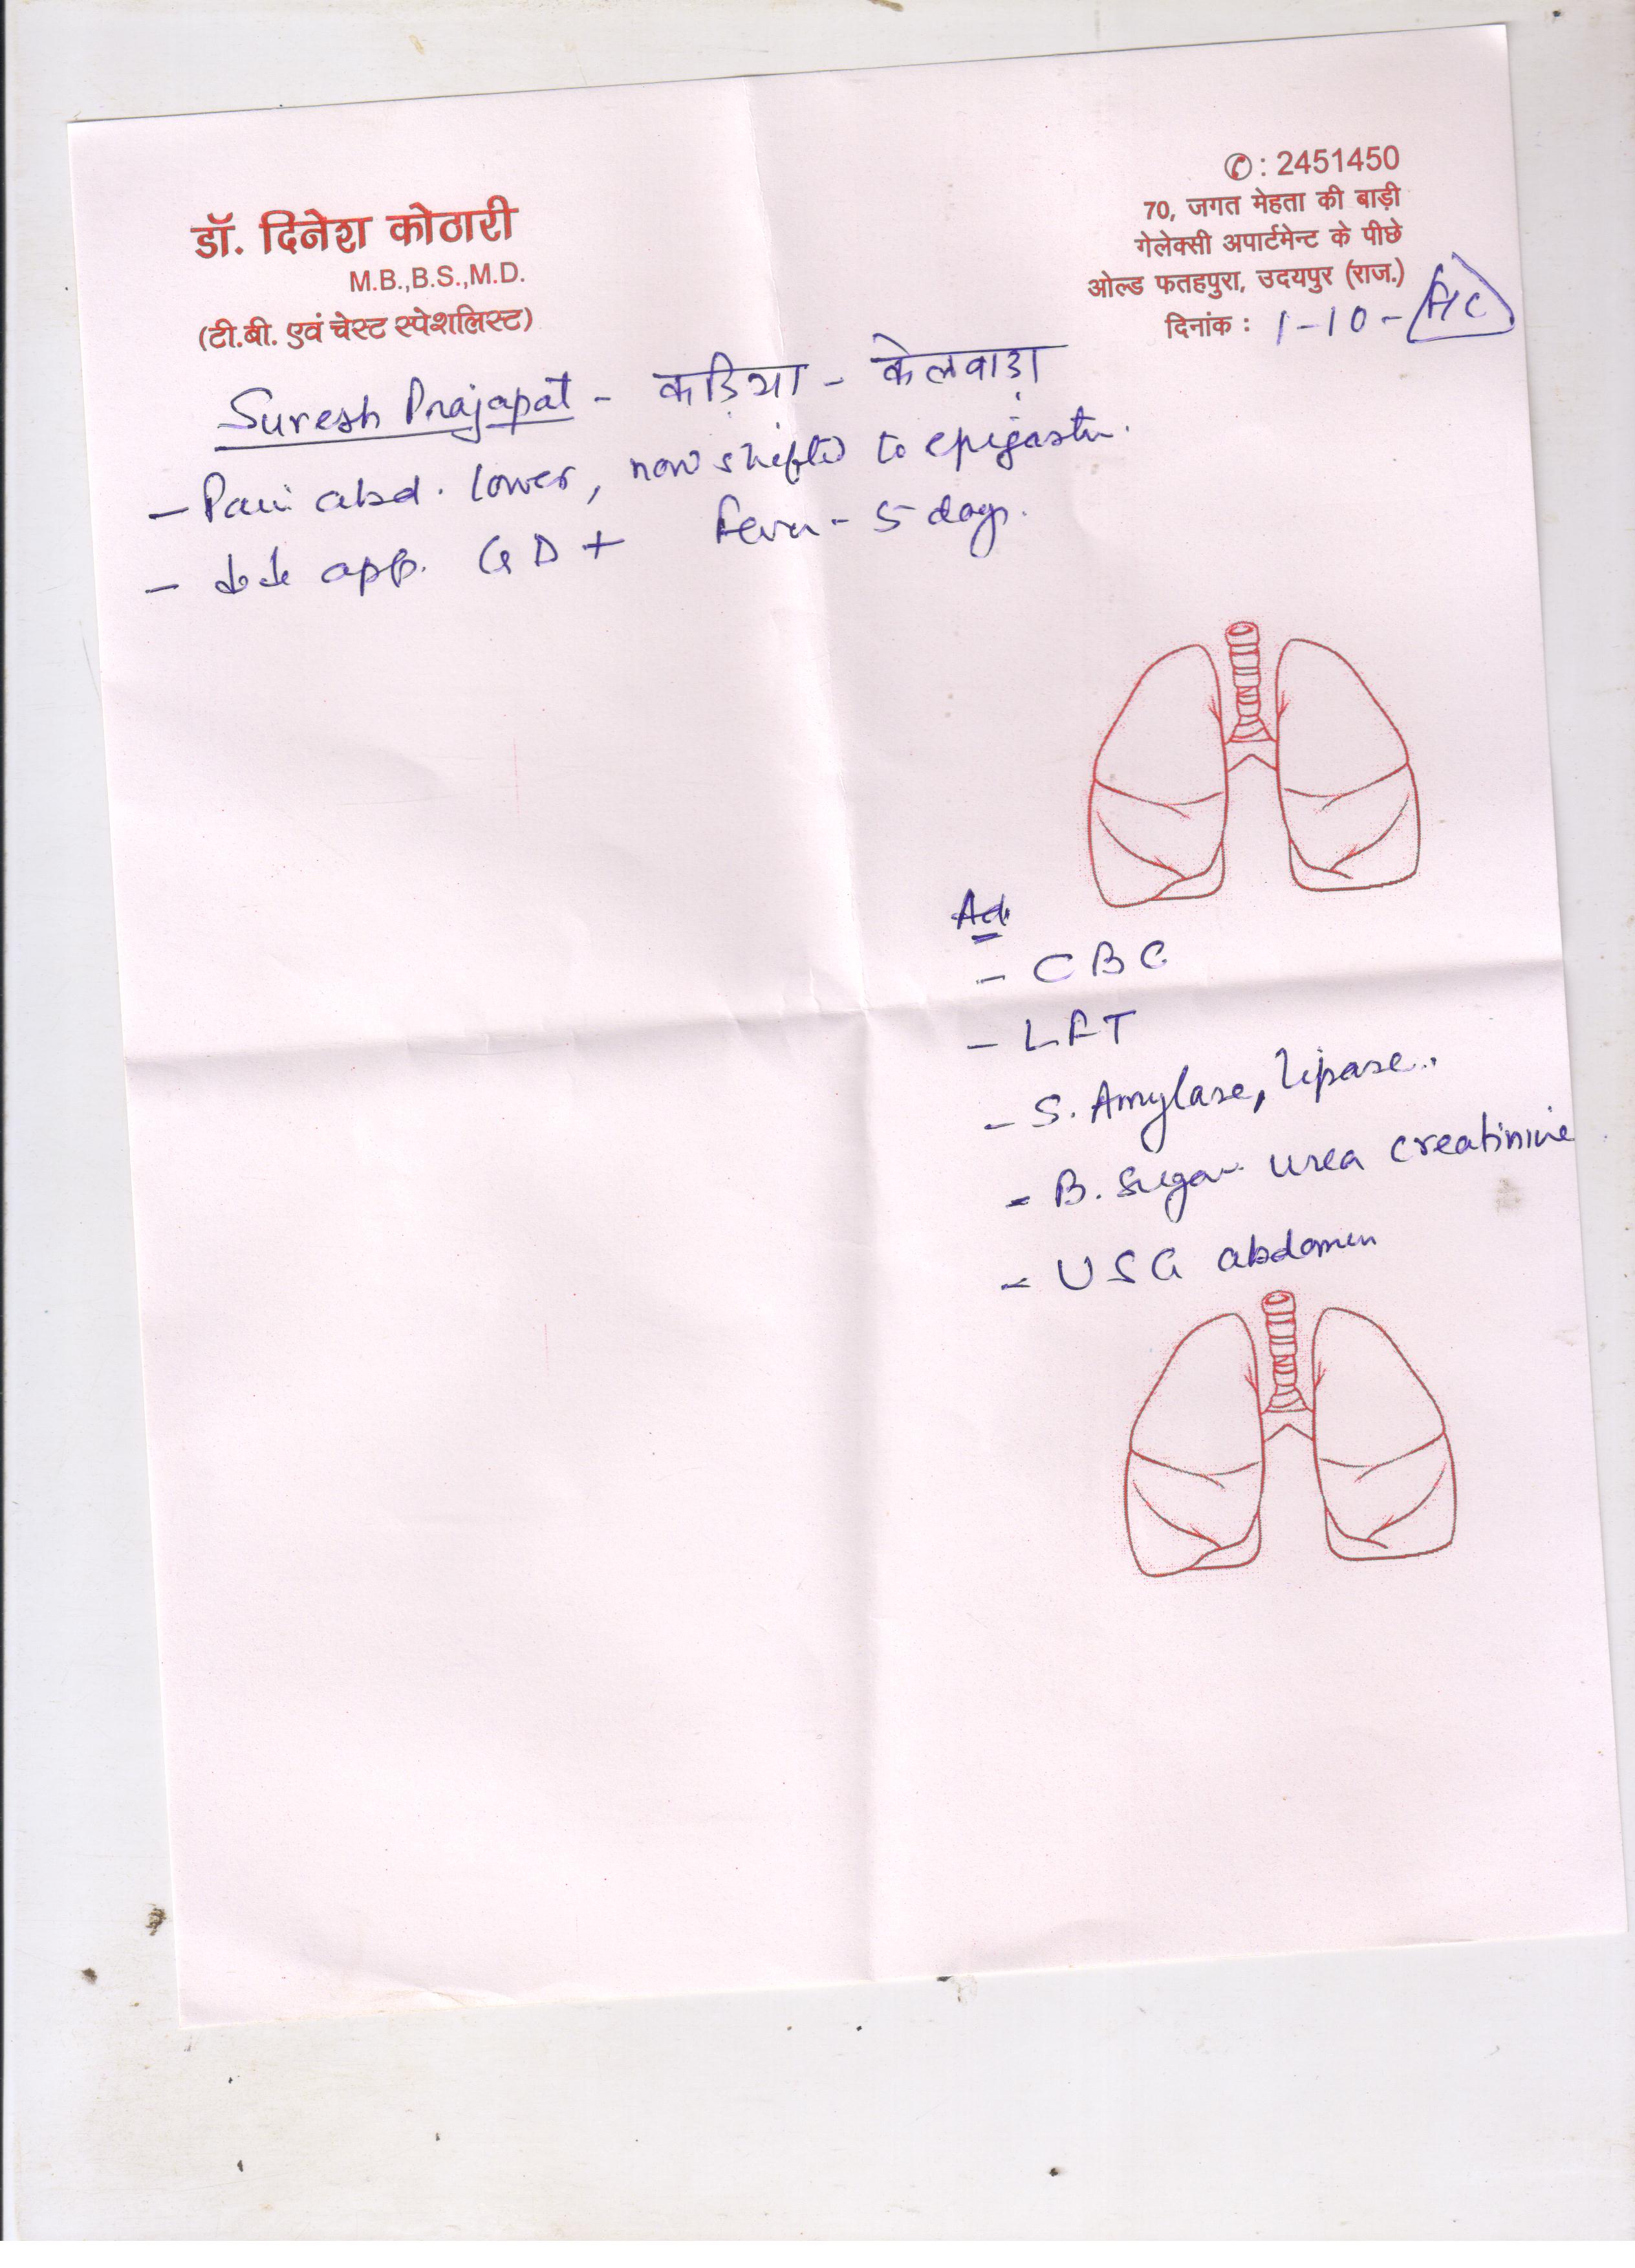 डॉ. दिनेश कोठारी
M.B.,B.S.,M.D.
(टी.बी. एवं चेस्ट स्पेशलिस्ट)
: 2451450
70, जगत मेहता की बाड़ी
गेलेक्सी अपार्टमेन्ट के पीछे
ओल्ड फतहपुरा, उदयपुर (राज.)
दिनांक : 1-10-
Suresh Prajapat - कड़िया - केलवाड़ा
- Pain abd. lower, now shifted to epigastr.
- app. GD + Fever - 5 days.
Ad
- CBC
- LFT
- S. Amylase, lipase..
- B. Sugar urea creatinine
- USG abdomen